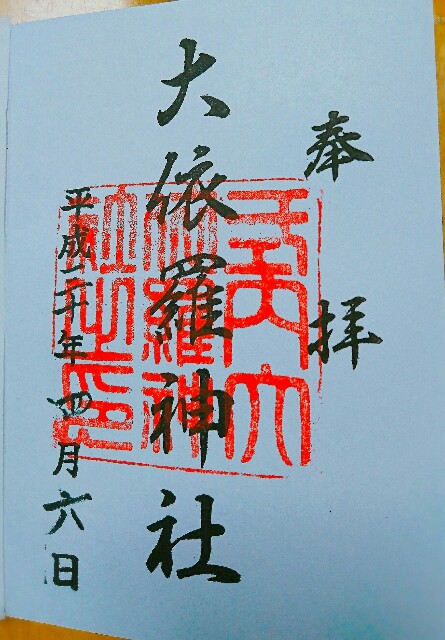 奉拝
大依羅神社
平成三十年四月六日
式内大
依羅神
社之印